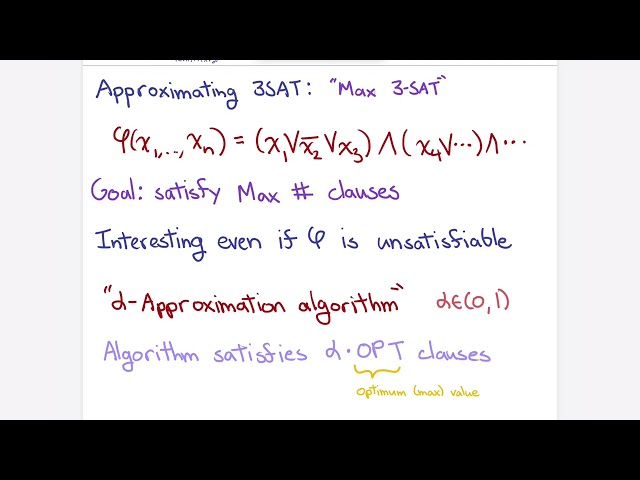 Approximating 3SAT: "Max 3-SAT"
φ(x₁,..., xₙ) = (x₁ ∨ x̅₂ ∨ x₃) ∧ (x₄ ∨ ···) ∧ ···
Goal: satisfy Max # clauses
Interesting even if φ is unsatisfiable
"α-Approximation algorithm" α∈(0,1)
Algorithm satisfies α·OPT clauses
Optimum (max) value